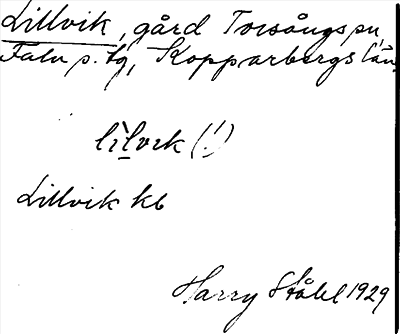 Lillvik, gård Torsångs sn,
Falu s. tg, Kopparbergs län.
lìlvik (!)
Lillvik kb
Harry Ståhl 1929